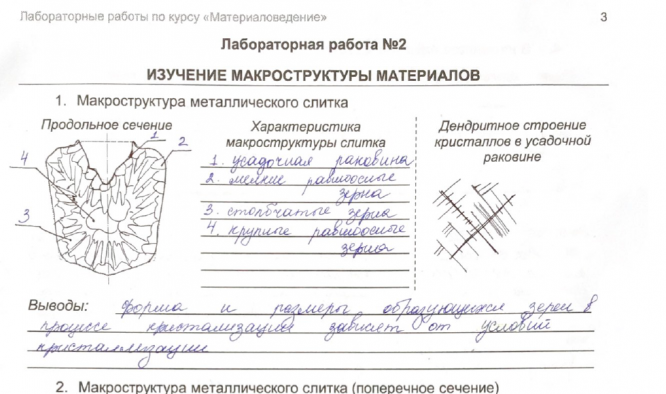 Лабораторные работы по курсу «Материаловедение»
3
Лабораторная работа №2
ИЗУЧЕНИЕ МАКРОСТРУКТУРЫ МАТЕРИАЛОВ
1. Макроструктура металлического слитка
Продольное сечение
1
2
4
3
Характеристика
макроструктуры слитка
1. усадочная раковина
2. мелкие равноосные
зерна
3. столбчатые зерна
4. крупные равноосные
зерна
Дендритное строение
кристаллов в усадочной
раковине
Выводы: форма и размеры образующихся зерен в
процессе кристализации зависят от условий
кристаллизации
2. Макроструктура металлического слитка (поперечное сечение)